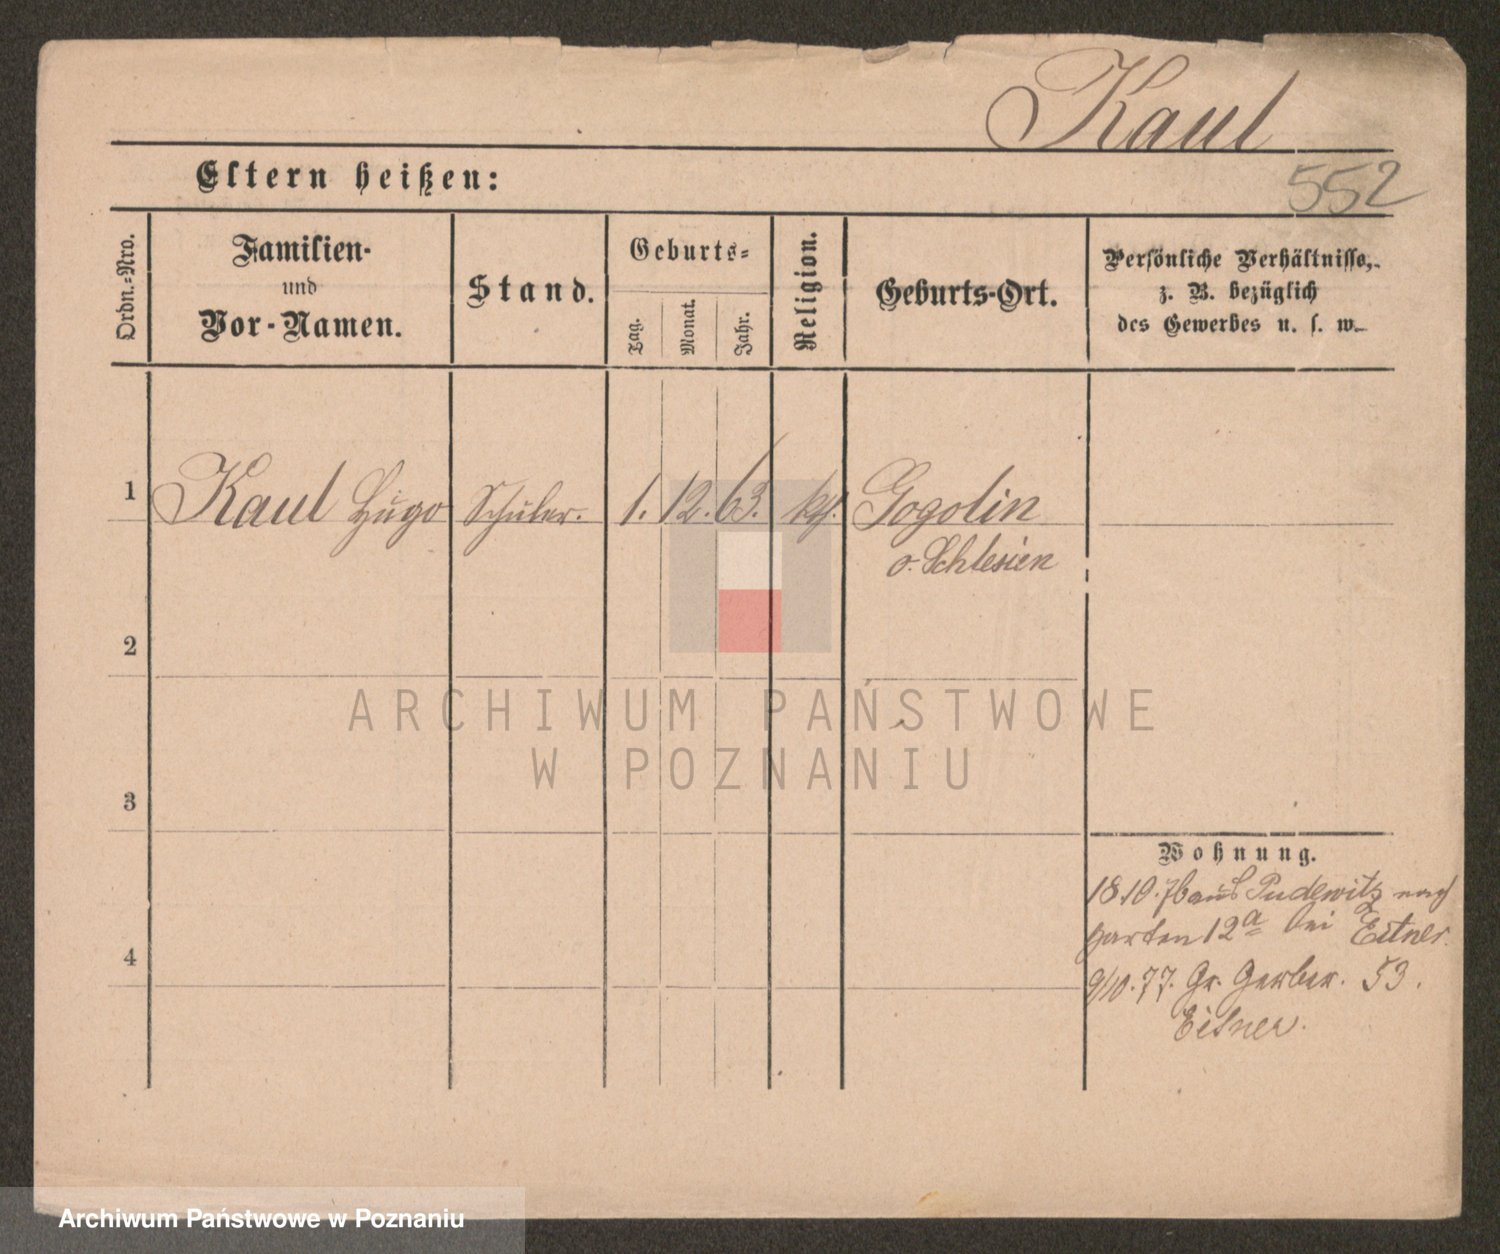 Kaul
Eltern heißen:
552
Ordn.=Nro.
Familien-
und
Vor-Namen.
Stand.
Geburts=
Tag.
Monat.
Jahr.
Religion.
Geburts-Ort.
Persönliche Verhältnisse,
z. B. bezüglich
des Gewerbes u. s. w.
1
Kaul Hugo
Schüler.
1. 12. 63.
kth.
Gogolin
o. Schlesien
2
ARCHIWUM PAŃSTWOWE
W POZNANIU
3
Wohnung.
18.10.76 aus Pudewitz nach
Garten 12a bei Eitner.
4
9/10.77. Gr. Gerber. 53.
Eitner.
Archiwum Państwowe w Poznaniu